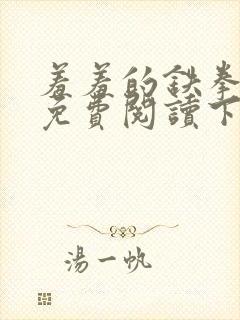 羞羞的鉄拳
免費閱讀下
湯一帆